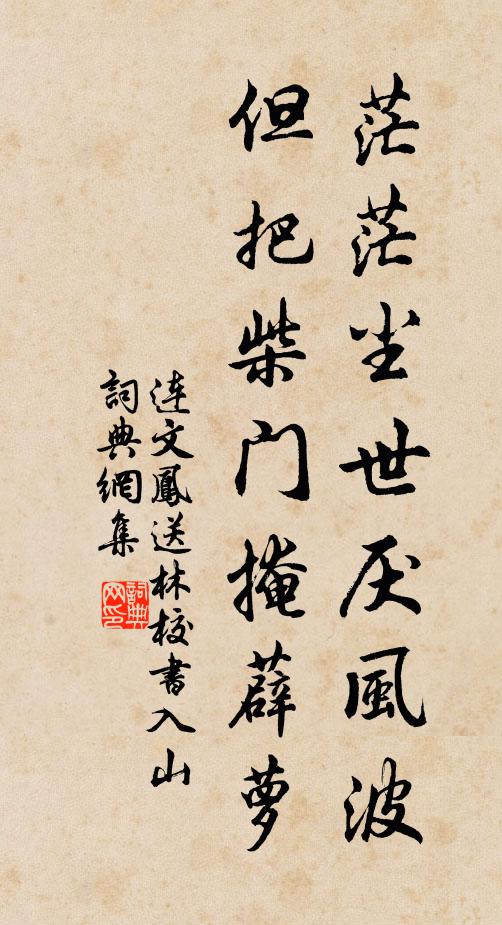 茫茫尘世厌風波
但把柴门掩薜萝
连文鳳送林校書入山
詞典網集
詞典网印